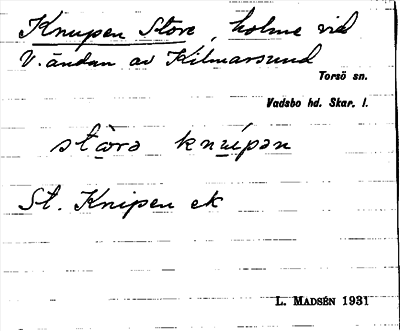 Knupen Store, holme vid
V. ändan av Kilmarsund
Torsö sn.
Vadsbo hd. Skar. l.
stòra knúpən
St. Knipen ek
L. MADSÉN 1931